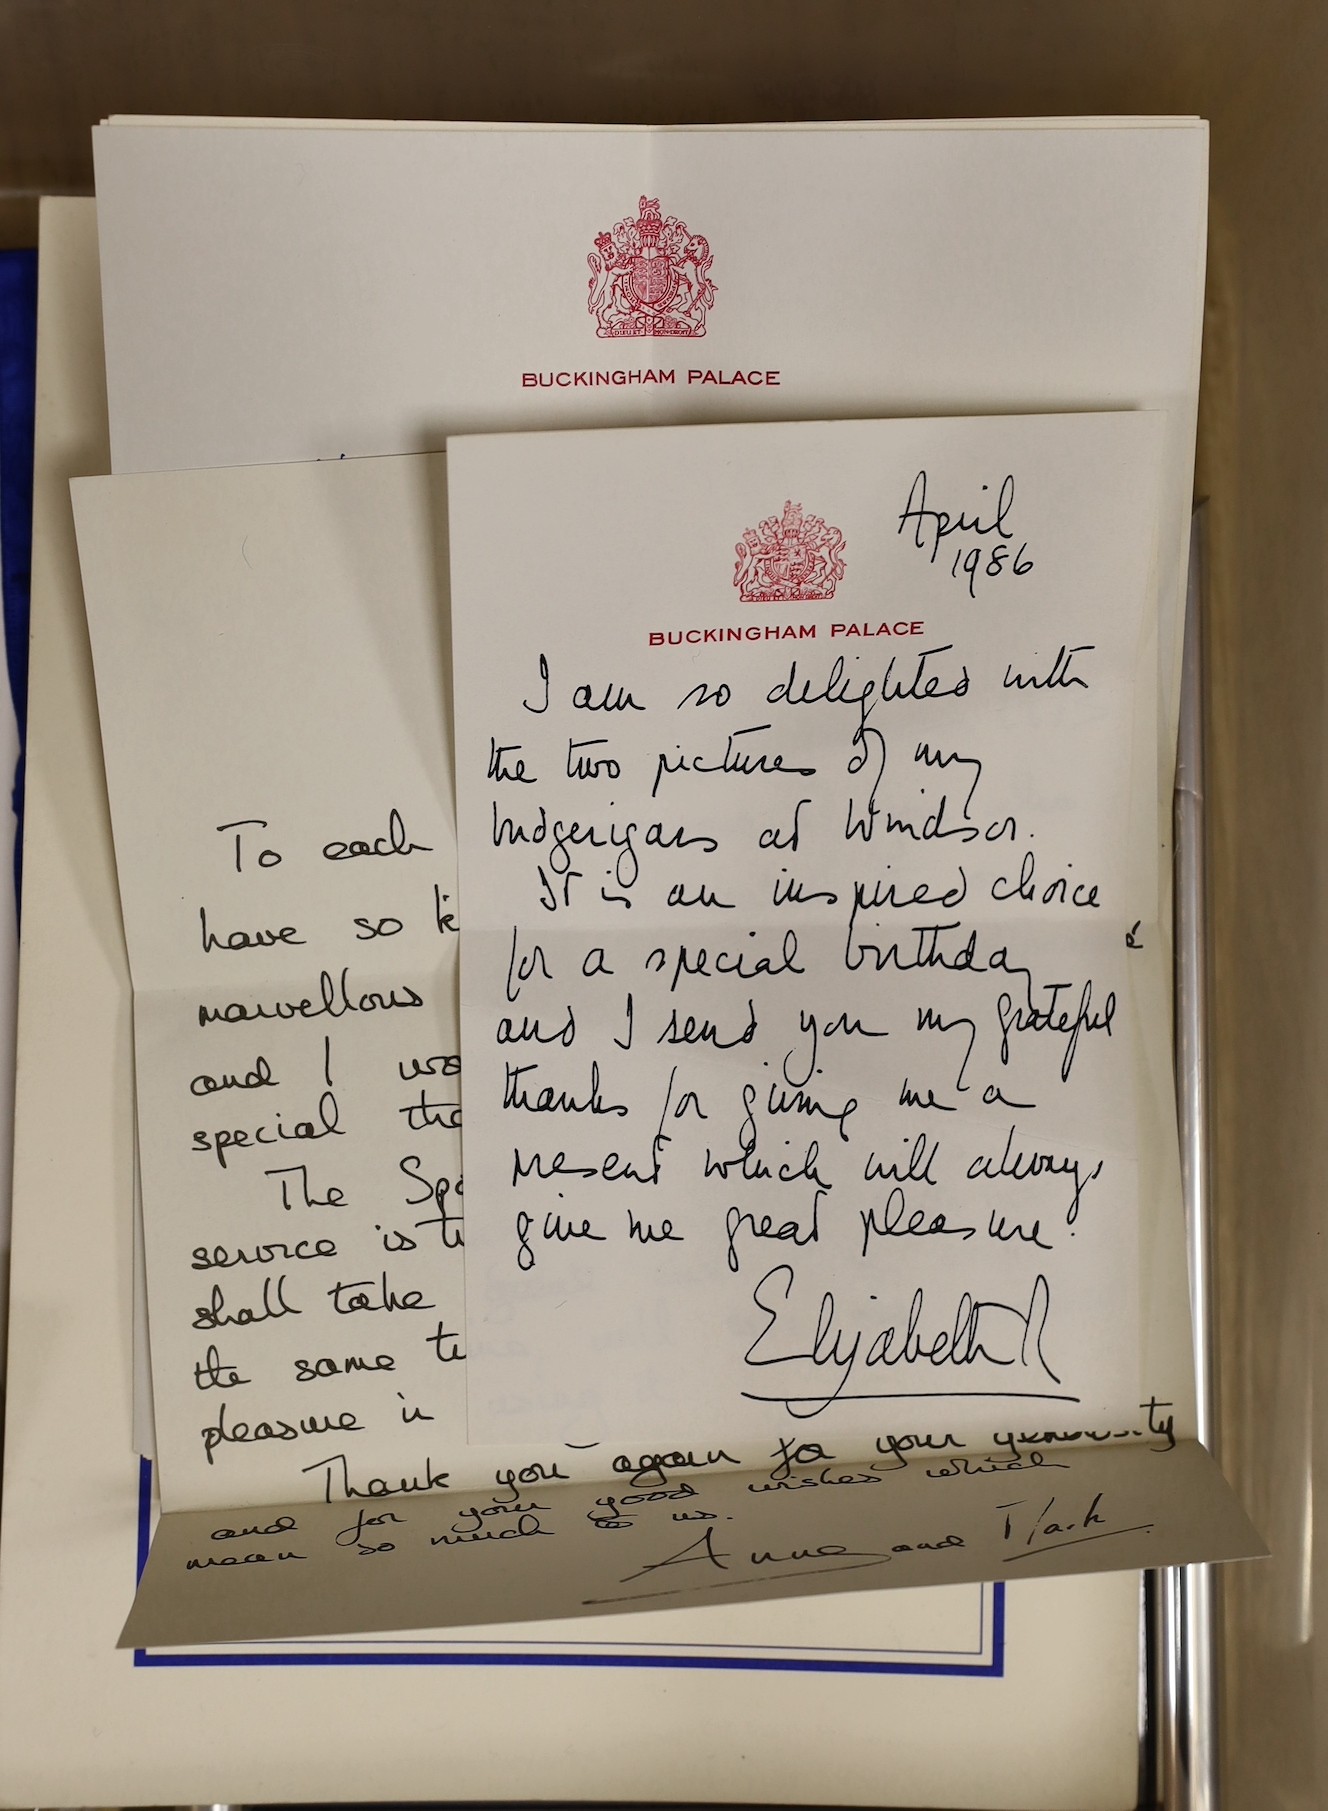 BUCKINGHAM PALACE
April
1986
BUCKINGHAM PALACE
I am so delighted with
the two pictures of my
budgerigars at Windsor.
It is an inspired choice
for a special birthday
and I send you my grateful
thanks for giving me a
present which will always
give me great pleasure.
Elizabeth R
To each
have so
marvellous
and I
special
The
service is
shall take
the same
pleasure in
Thank you again for your generosity
and for your good wishes which
mean so much to us.
Anne and Mark